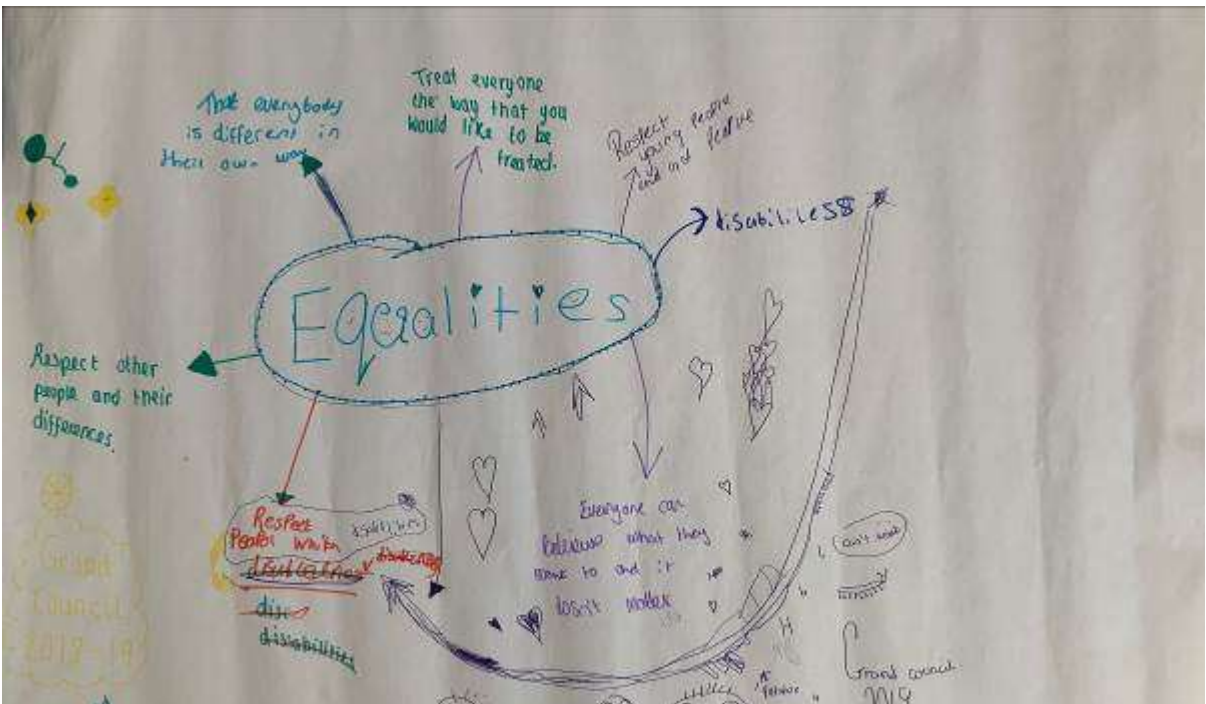 That everybody
is different in
their own way
Treat everyone
the way that you
would like to be
treated.
Respect
young people
and old people
disabilities
Equalities
Respect other
people and their
differences.
Respect
People which
disabilities
dis
disiabilities
Everyone can
believe what they
want to and it
dosn't matter
Grand
Council
2017-19
Grand council
2018